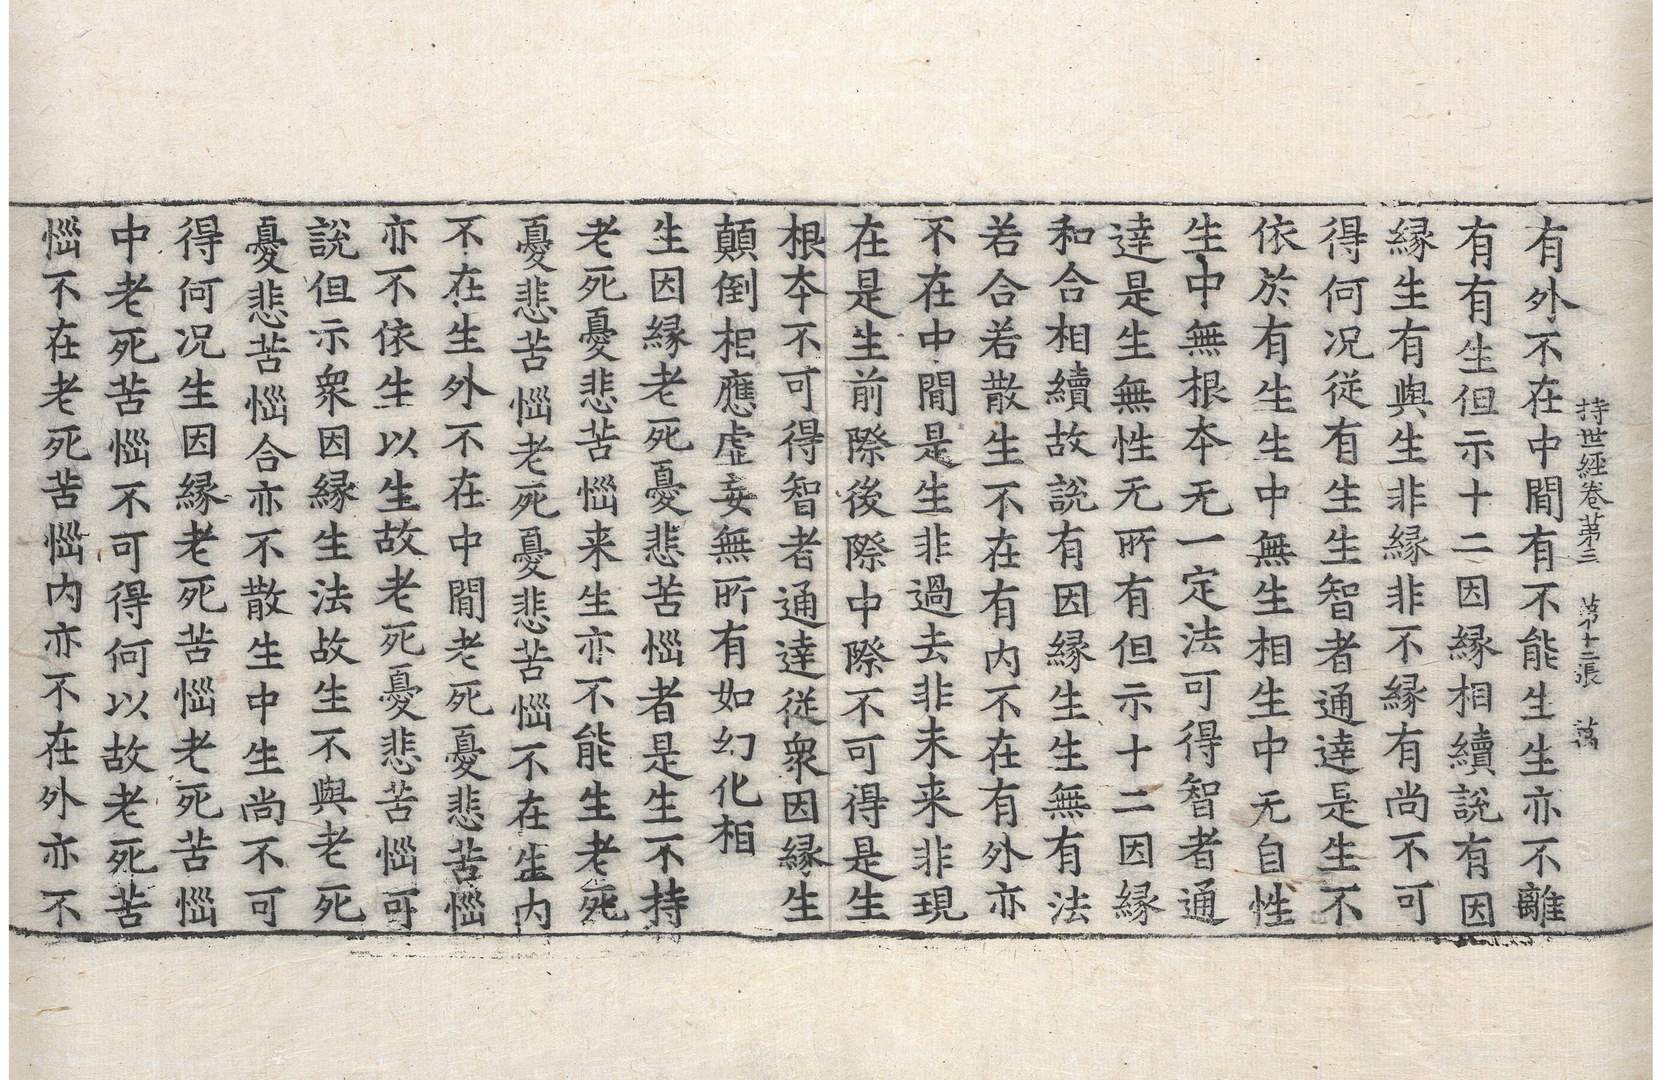 持世經卷第三 第十三張 萬
有外不在中間有不能生生亦不離
有有生但示十二因縁相續說有因
縁生有與生非縁非不縁有尚不可
得何况從有生生智者通達是生不
依於有生生中無生相生中无自性
生中無根夲无一定法可得智者通
達是生無性无所有但示十二因縁
和合相續故說有因縁生生無有法
若合若散生不在有内不在有外亦
不在中間是生非過去非未来非現
在是生前際後際中際不可得是生
根夲不可得智者通達從衆因縁生
顛倒相應虛妄無所有如幻化相
生因縁老死憂悲苦惱者是生不持
老死憂悲苦惱来生亦不能生老死
憂悲苦惱老死憂悲苦惱不在生内
不在生外不在中間老死憂悲苦惱
亦不依生以生故老死憂悲苦惱可
說但示衆因縁生法故生不與老死
憂悲苦惱合亦不散生中生尚不可
得何况生因縁老死苦惱老死苦惱
中老死苦惱不可得何以故老死苦
惱不在老死苦惱内亦不在外亦不